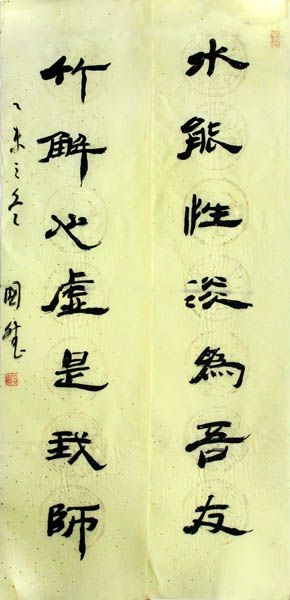 水能性淡為吾友
竹解心虛是我師
乙未之冬
國